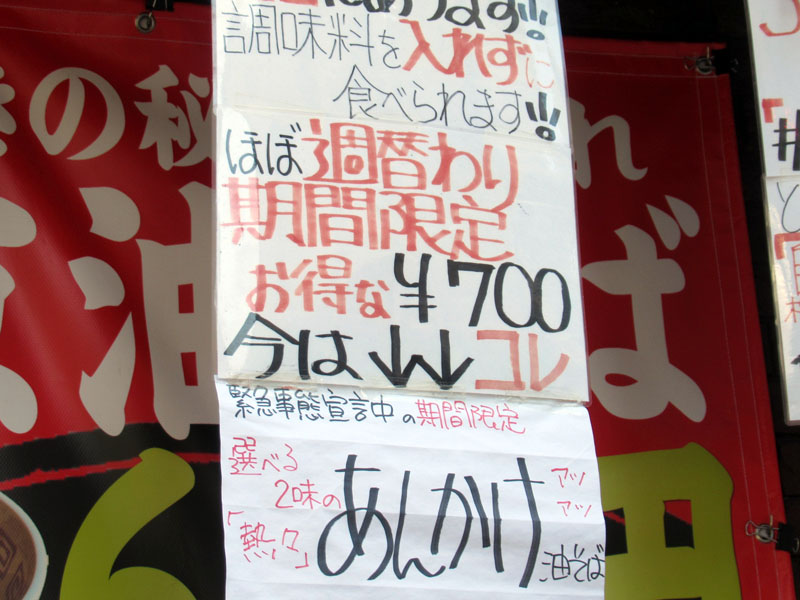 調味料を入れずに
食べられます!!!
ほぼ週替わり
期間限定
お得な¥700
今は↓↓コレ
緊急事態宣言中の期間限定
選べる
2味の
「熱々」
あんかけ
アツ
アツ
油そば
の秘
油
ば
れ